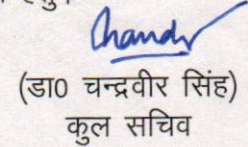 Chandr
(डा० चन्द्रवीर सिंह)
कुल सचिव